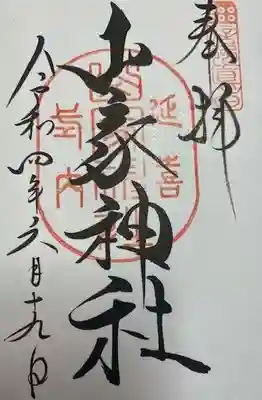 奉拝
延喜
山家神社
式内
令和四年六月十九日